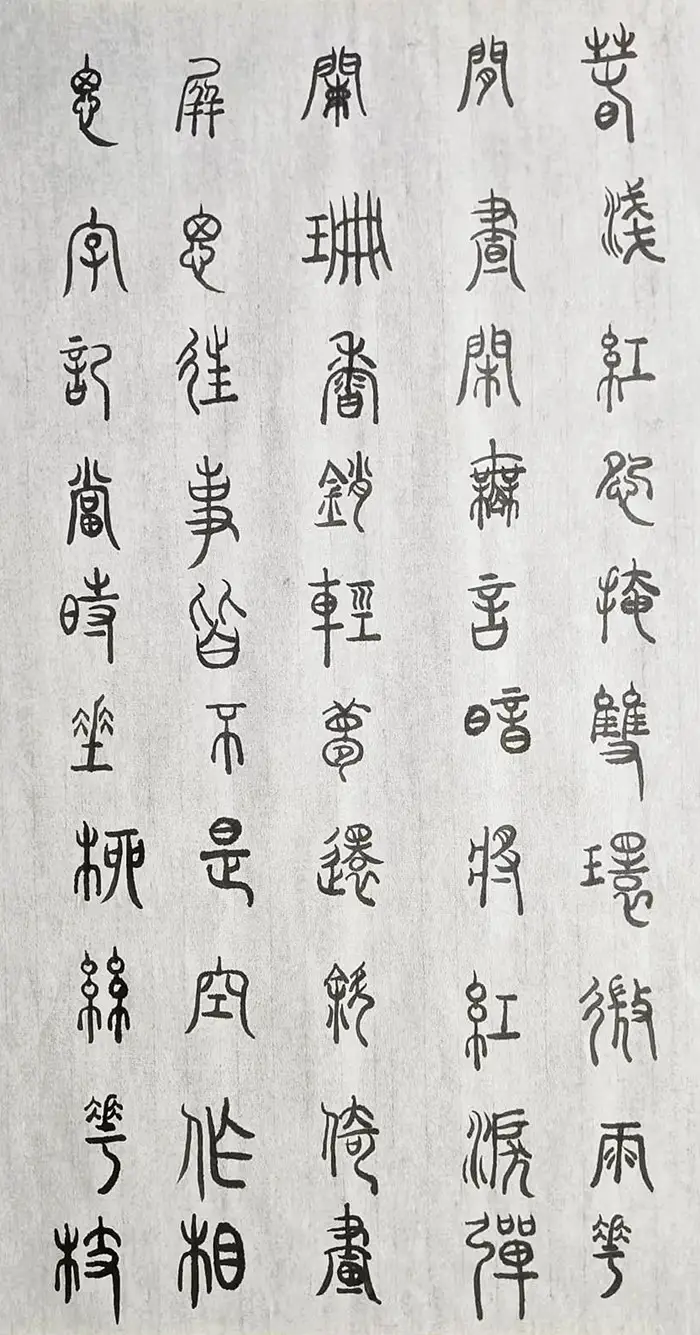 春淺紅怨掩雙環微雨花
間晝閑無言暗將紅淚彈
闌珊香銷輕夢還斜倚畫
屏思往事皆不是空作相
思字記當時垂柳絲花枝